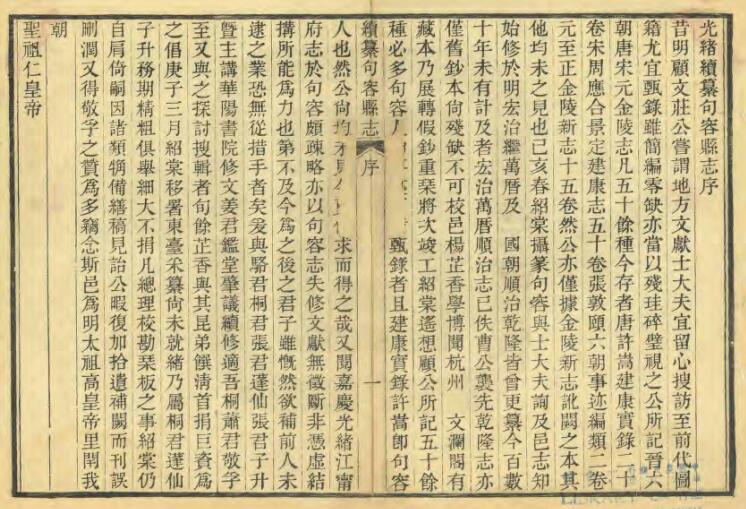 光緒續纂句容縣志序
昔明顧文莊公嘗謂地方文獻士大夫宜留心搜訪至前代圖
籍尤宜甄錄雖簡編零缺亦當以殘珪碎璧視之公所記晉六
朝唐宋元金陵志凡五十餘種今存者唐許嵩建康實錄二十
卷宋周應合景定建康志五十卷張敦頤六朝事迹編類二卷
元至正金陵新志十五卷然公亦僅據金陵新志訛闕之本其
他均未之見也己亥春紹棠攝篆句容與士大夫詢及邑志知
始修於明宏治繼萬曆及 國朝順治乾隆皆曾更纂今百數
十年未有計及者宏治萬曆順治志已佚曹公襲先乾隆志亦
僅舊鈔本尚殘缺不可校邑楊芷香學博聞杭州 文瀾閣有
藏本乃展轉假鈔重棻將次竣工紹棠遙想顧公所記五十餘
種必多句容人 甄錄者且建康實錄許嵩卽句容
續纂句容縣志 序 一
人也然公尚均未見 求而得之哉又閱嘉慶光緒江甯
府志於句容頗疎略亦以句容志失修文獻無徵斷非憑虛結
搆所能為力也第不及今為之後之君子雖慨然欲補前人未
逮之業恐無從措手者矣爰與駱君桐君張君蓬仙張君子升
暨主講華陽書院修文姜君鑑堂肇議續修適吾桐蕭君敬孚
至又與之探討搜輯者句餘芷香與其昆弟饌清首捐巨資為
之倡庚子三月紹棠移署東臺釆纂尚未就緒乃屬桐君蓬仙
子升務期精粗俱舉細大不捐凡總理校勘棻板之事紹棠仍
自肩倚嗣因諸類犕備繕稿見詒公暇復加拾遺補闕而刊誤
刪潤又得敬孚之贊為多竊念斯邑為明太祖高皇帝里閈我
朝
聖祖仁皇帝